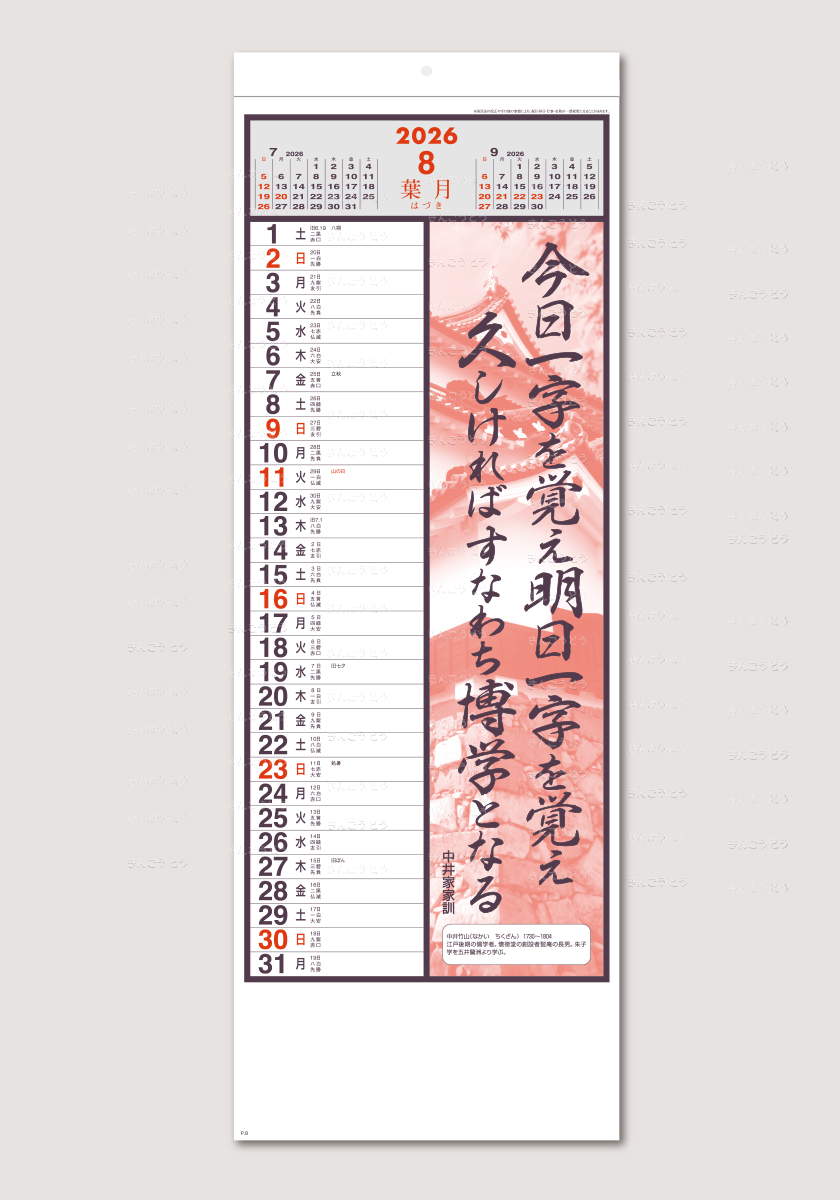 2026
8
葉月
はづき
7 2026
日 月 火 水 木 金 土
1 2 3 4
5 6 7 8 9 10 11
12 13 14 15 16 17 18
19 20 21 22 23 24 25
26 27 28 29 30 31
9 2026
日 月 火 水 木 金 土
1 2 3 4 5
6 7 8 9 10 11 12
13 14 15 16 17 18 19
20 21 22 23 24 25 26
27 28 29 30
1 土 旧6.19 二黒 赤口 八朔
2 日 20日 一白 先勝
3 月 21日 九紫 友引
4 火 22日 八白 先負
5 水 23日 七赤 仏滅
6 木 24日 六白 大安
7 金 25日 五黄 赤口 立秋
8 土 26日 四緑 先勝
9 日 27日 三碧 友引
10 月 28日 二黒 先負
11 火 29日 一白 仏滅 山の日
12 水 30日 九紫 大安
13 木 旧7.1 八白 先勝
14 金 2日 七赤 友引
15 土 3日 六白 先負
16 日 4日 五黄 仏滅
17 月 5日 四緑 大安
18 火 6日 三碧 赤口
19 水 7日 二黒 先勝 旧七夕
20 木 8日 一白 友引
21 金 9日 九紫 先負
22 土 10日 八白 仏滅
23 日 11日 七赤 大安 処暑
24 月 12日 六白 赤口
25 火 13日 五黄 先勝
26 水 14日 四緑 友引
27 木 15日 三碧 先負 旧ぼん
28 金 16日 二黒 仏滅
29 土 17日 一白 大安
30 日 18日 九紫 赤口
31 月 19日 八白 先勝
今日一字を覚え明日一字を覚え
久しければすなわち博学となる
中井家家訓
中井竹山(なかい ちくざん) 1730〜1804
江戸後期の儒学者。懐徳堂の創設者甃庵の長男。朱子
学を五井蘭洲より学ぶ。
P.8
きんこうどう